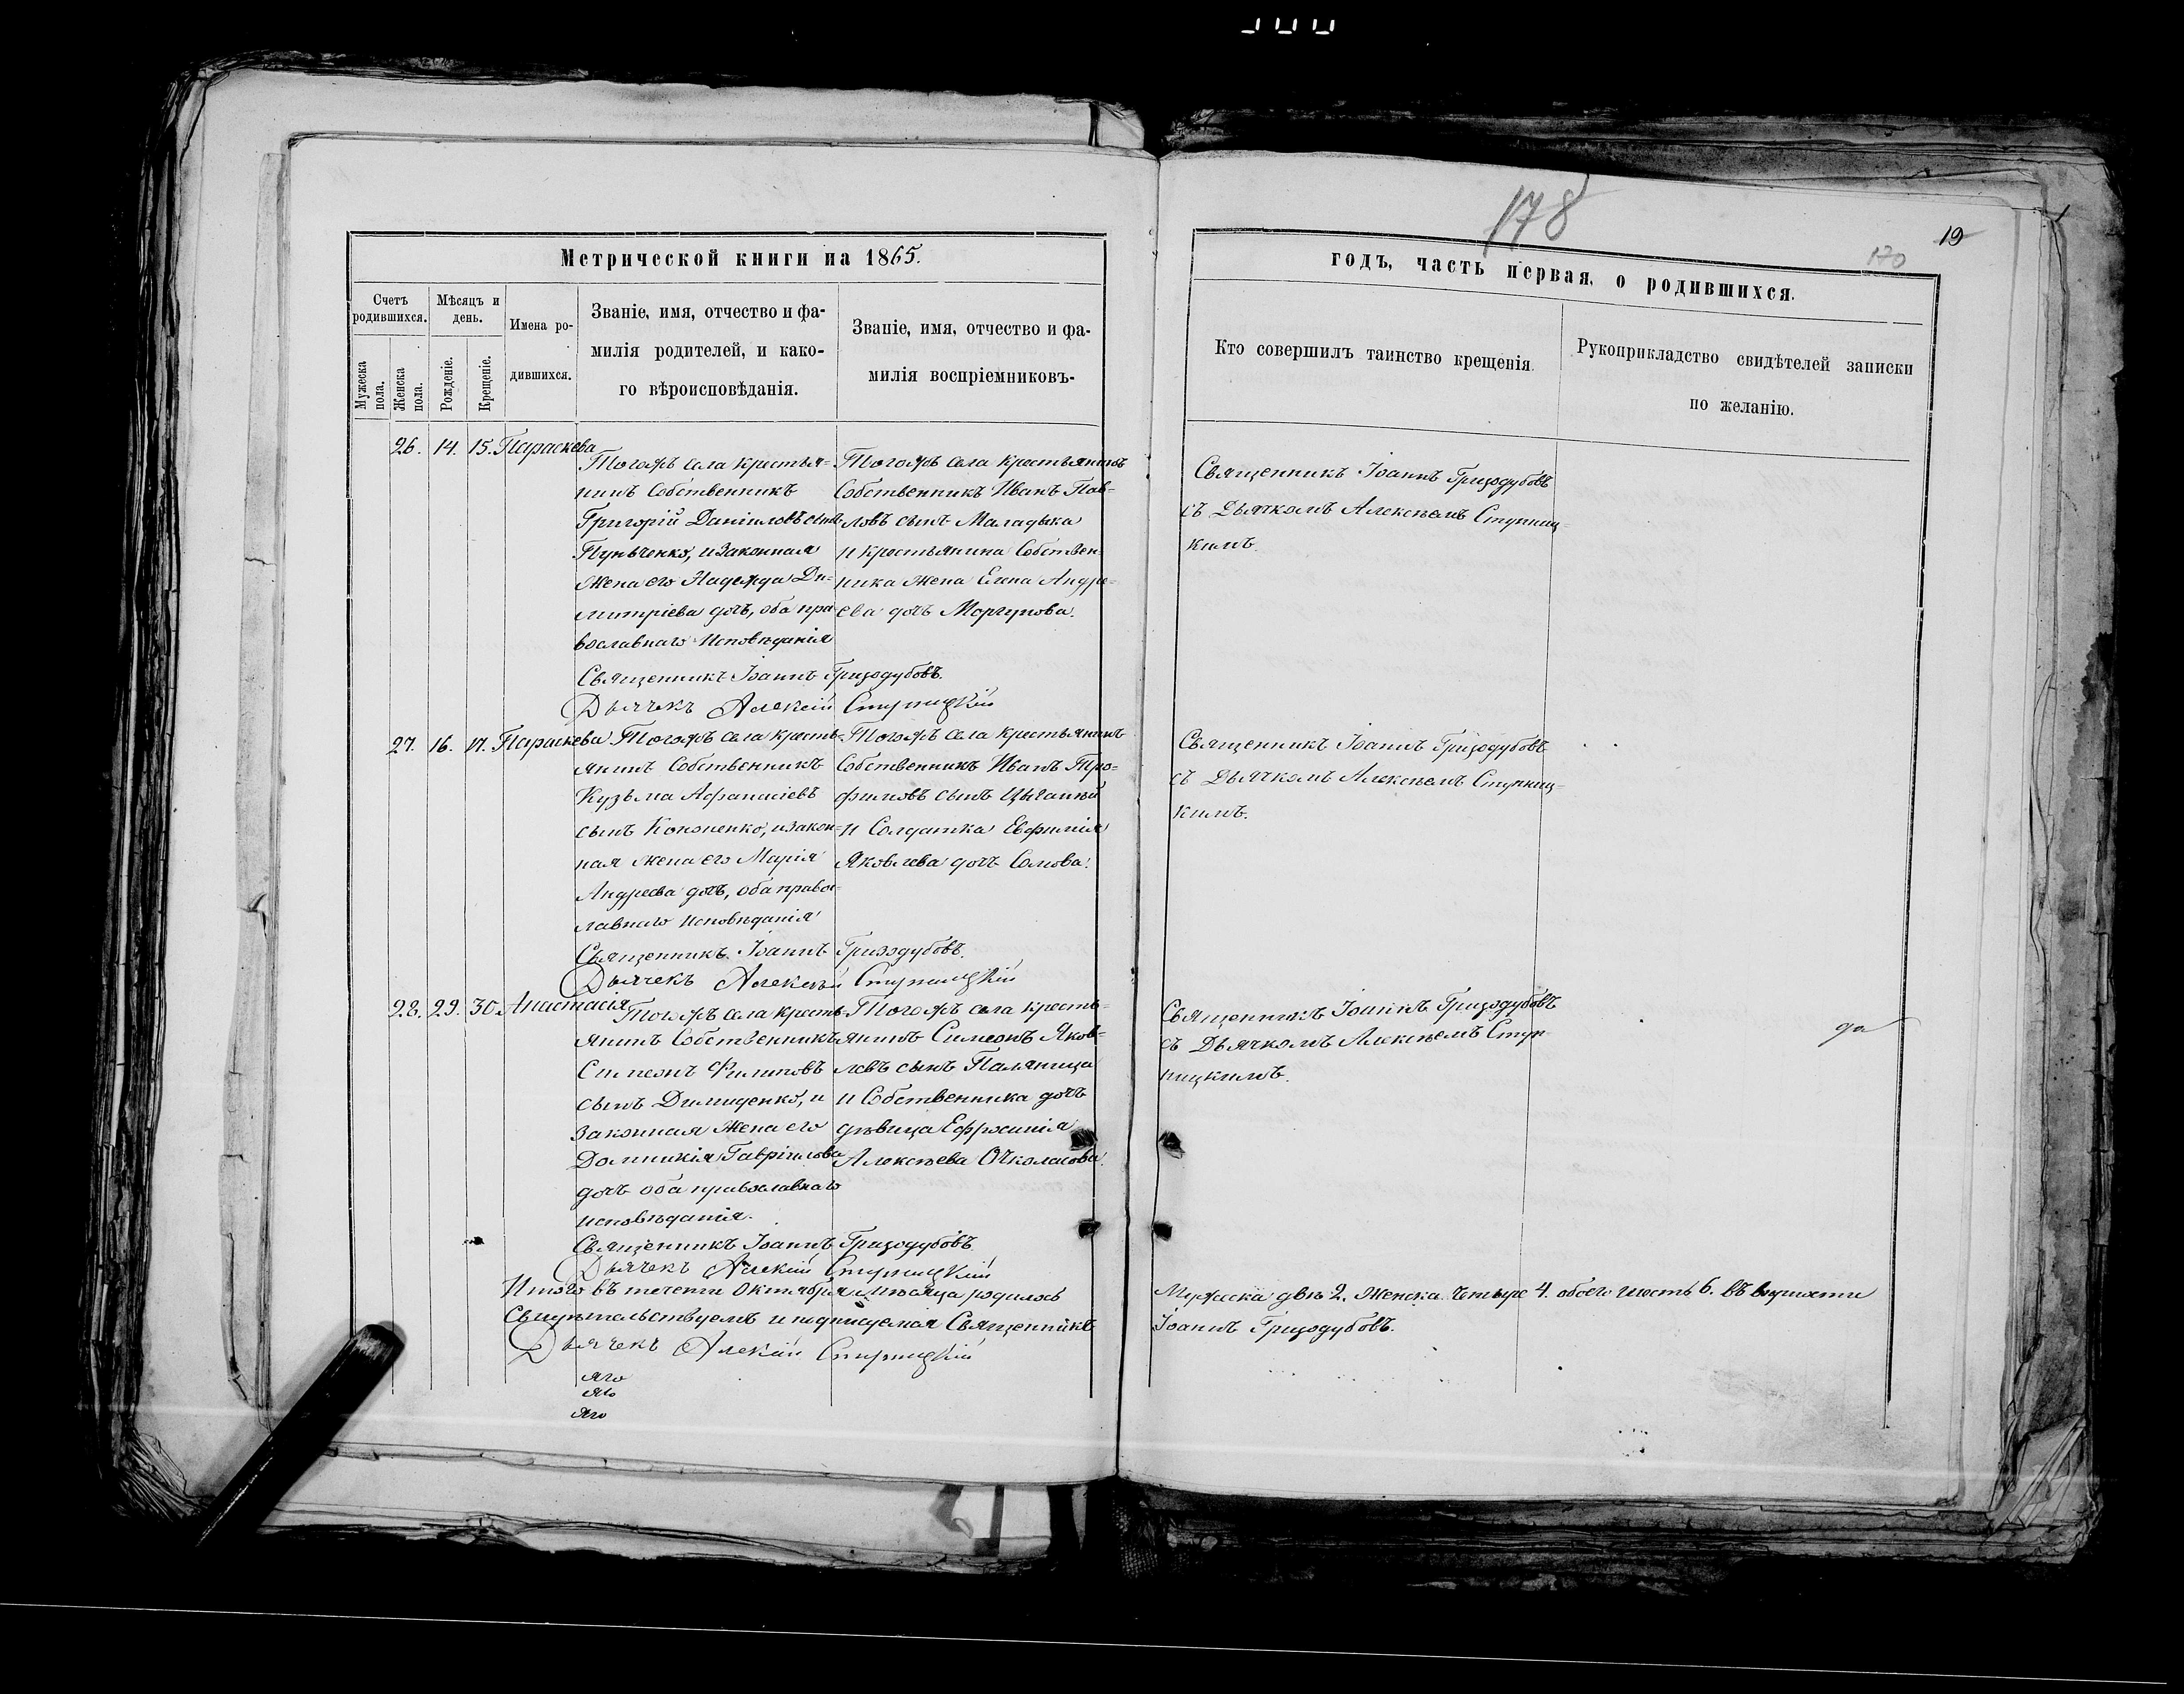 178
19
170
Метрической книги на 1865.
годъ, часть первая, о родившихся.
Счетъ родившихся.
Мужеска пола.
Женска пола.
Мѣсяцъ и день.
Рожденіе.
Крещеніе.
Имена родившихся.
Званіе, имя, отчество и фа-
милія родителей, и како-
го вѣроисповѣданія.
Званіе, имя, отчество и фа-
милія воспріемниковъ-
Кто совершилъ таинство крещенія.
Рукоприкладство свидѣтелей записки
по желанію.
26. 14. 15. Параскева
Тогожъ села крестья-
нинъ Собственникъ
Григорій Даніиловъ сынъ
жена его Надежда Ди-
митріева дочь, оба пра-
вославнаго исповѣданія
Тогожъ села крестьянинъ
Собственникъ Иванъ Пав-
ловъ сынъ
и крестьянина Собствен-
ника жена Елена Андре-
ева дочь Моргунова.
Священникъ Іоаннъ Гризодубовъ
съ Дьячкомъ Алексѣемъ Ступниц-
кимъ.
Священникъ Іоаннъ Гризодубовъ.
Дьячекъ Алексій Ступницкій
27. 16. 17. Параскева
Тогожъ села кресть-
янинъ Собственникъ
Кузьма Афанасіевъ
сынъ Кононенко, и закон-
ная жена его Марія
Андреева дочь, оба правос-
лавнаго исповѣданія
Тогожъ села крестьянинъ
Собственникъ Иванъ Тро-
фимовъ сынъ
и Солдатка Евфимія
Яковлева дочь Сомова.
Священникъ Іоаннъ Гризодубовъ
съ Дьячкомъ Алексѣемъ Ступниц-
кимъ.
Священникъ Іоаннъ Гризодубовъ.
Дьячекъ Алексѣй Ступницкій
28. 29. 30. Анастасія
Тогожъ села кресть-
янинъ Собственникъ
Симеонъ Филиповъ
сынъ Димиденко, и
законная жена его
Домникія Гавріилова
дочь оба православнаго
исповѣданія.
Тогожъ села кресть-
янинъ Симеонъ Яков-
левъ сынъ Паляница
и Собственника дочь
дѣвица Ефросинія
Алексѣева
Священникъ Іоаннъ Гризодубовъ
съ Дьячкомъ Алексѣемъ Ступ-
ницкимъ.
да
Священникъ Іоаннъ Гризодубовъ
Дьячекъ Алексій Ступницкій
Итого въ теченіи Октября мѣсяца родилось Мужеска двѣ 2. Женска четыре 4. обоего шесть 6. въ вѣрности
Свидѣтельствуемъ и подписуемся Священникъ Іоаннъ Гризодубовъ.
Дьячекъ Алексій Ступницкій